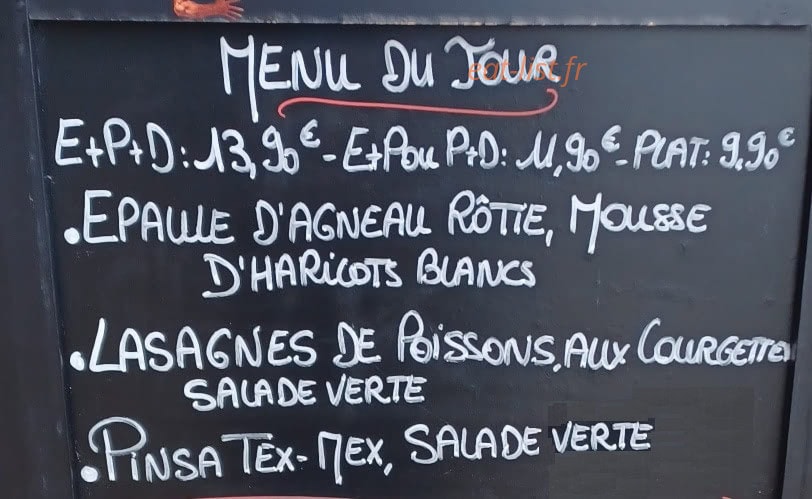 MENU DU JOUR
eat-list.fr
E+P+D: 13,90€ - E+P ou P+D: 11,90€ - PLAT: 9,90€
. EPAULE D'AGNEAU RÔTIE, MOUSSE
D'HARICOTS BLANCS
. LASAGNES DE POISSONS, AUX COURGETTES
SALADE VERTE
. PINSA TEX-MEX, SALADE VERTE